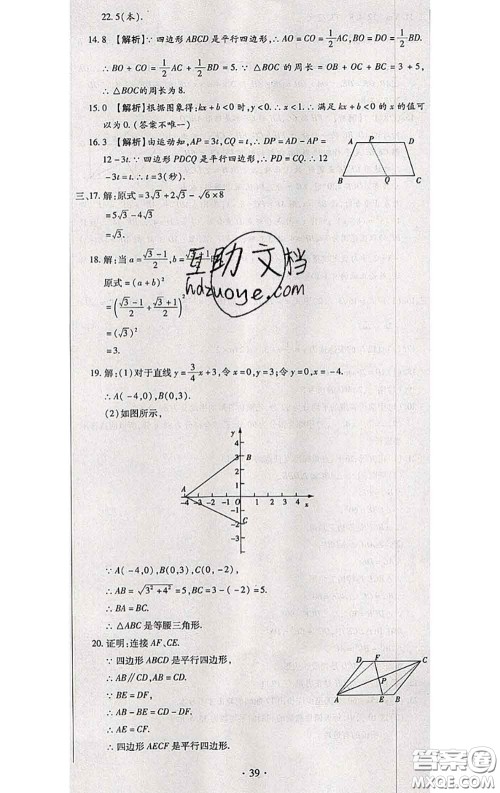 22.5(本).
14.8 【解析】∵四边形ABCD是平行四边形,∴AO=CO=1/2AC,BO=DO=1/2BD.
∴BO+CO=1/2AC+1/2BD=5.∵△BOC的周长=OB+OC+BC=3+5,
∴△BOC的周长为8.
15.0 【解析】根据图象得:kx+b<0时,y<0.∴x<1.∴满足kx+b<0的x的值可
以为0.(答案不唯一)
16.3 【解析】由运动知,AP=3t,CQ=t,∴DP=AD-AP=
12-3t.∵四边形PDCQ是平行四边形,∴PD=CQ.∴12
-3t=t.∴t=3(秒).
A P D
B Q C
三、17.解:原式=3√3+2√3-√(6×8)
=5√3-4√3
=√3.
18.解:当a=(√3-1)/2,b=(√3+1)/2
原式=(a+b)²
=((√3-1)/2+(√3+1)/2)²
=(√3)²
=3.
互助文档
hdzuoye.com
19.解:(1)对于直线y=3/4x+3,令x=0,y=3;令y=0,x=-4.
∴A(-4,0),B(0,3).
(2)如图所示,
y
4
3 B
2
1
A
-4 -3 -2 -1 0 1 2 3 4 x
-1
-2 C
-3
∵A(-4,0),B(0,3),C(0,-2),
∴AB=√(3²+4²)=5,BC=3-(-2)=5.
∴BA=BC.
∴△ABC是等腰三角形.
20.证明:连接AF、CE.
∵四边形ABCD是平行四边形,
∴AB∥CD,AB=CD.
∵BE=DF,
∴AB-BE=CD-DF.
∴AE=CF.
∴四边形AECF是平行四边形.
D F C
P
A E B
·39·
答案圈
MXQE.COM